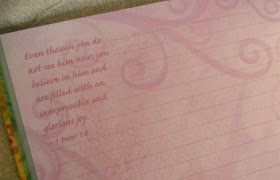 Even though you do
not see him now, you
believe in him and
are filled with an
inexpressible and
glorious joy.
1 Peter 1:8